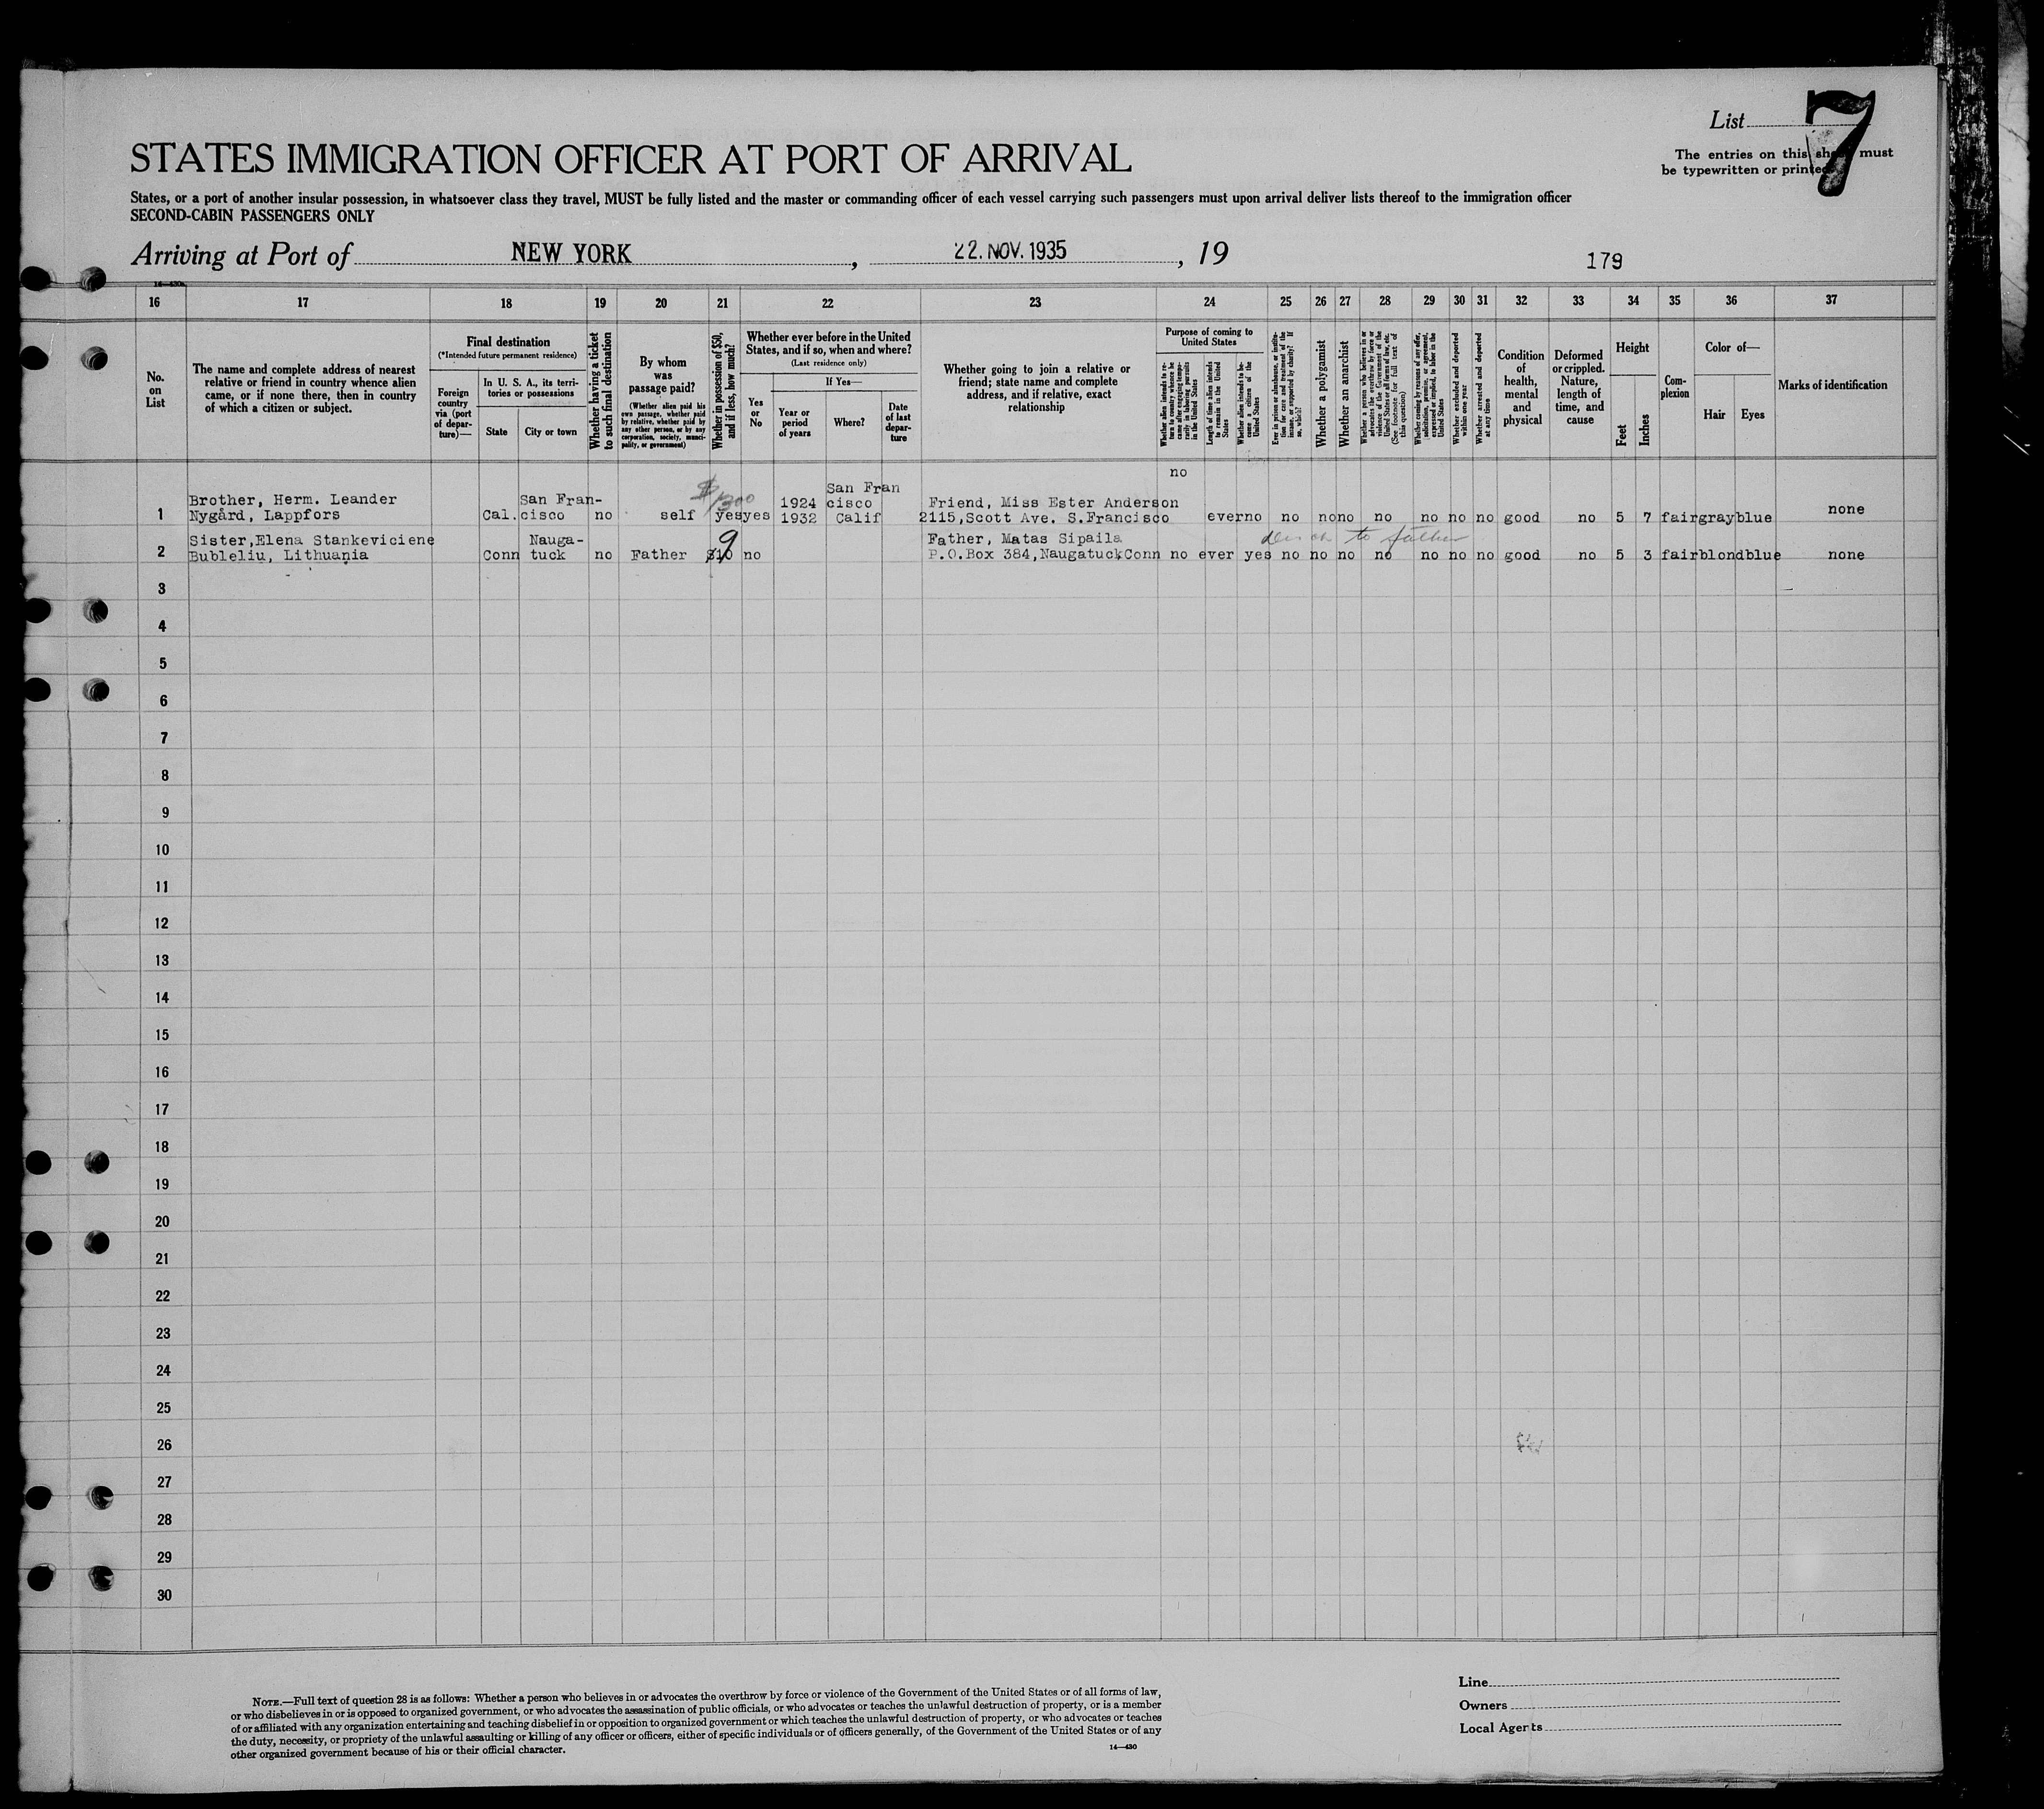 List 7
The entries on this sheet must
be typewritten or printed
STATES IMMIGRATION OFFICER AT PORT OF ARRIVAL
States, or a port of another insular possession, in whatsoever class they travel, MUST be fully listed and the master or commanding officer of each vessel carrying such passengers must upon arrival deliver lists thereof to the immigration officer
SECOND-CABIN PASSENGERS ONLY
Arriving at Port of NEW YORK, 22. NOV. 1935, 19
179
14—430
16 17 18 19 20 21 22 23 24 25 26 27 28 29 30 31 32 33 34 35 36 37
No.
on
List
The name and complete address of nearest
relative or friend in country whence alien
came, or if none there, then in country
of which a citizen or subject.
Final destination
(*Intended future permanent residence)
Foreign
country
via (port
of depar-
ture)—
In U. S. A., its terri-
tories or possessions
State
City or town
Whether having a ticket
to such final destination
By whom
was
passage paid?
(Whether alien paid his
own passage, whether paid
by relative, whether paid by
any other person, or by any
corporation, society, munci-
pality, or government)
Whether in possession of $50,
and if less, how much?
Whether ever before in the United
States, and if so, when and where?
(Last residence only)
Yes
or
No
If Yes—
Year or
period
of years
Where?
Date
of last
depar-
ture
Whether going to join a relative or
friend; state name and complete
address, and if relative, exact
relationship
Purpose of coming to
United States
Whether alien intends to re-
turn to country whence he
came after engaging tempo-
rarily in laboring pursuits
in the United States
Length of time alien intends
to remain in the United
States
Whether alien intends to be-
come a citizen of the
United States
Ever in prison or almshouse, or institu-
tion for care and treatment of the
insane, or supported by charity? If
so, which?
Whether a polygamist
Whether an anarchist
Whether a person who believes in or
advocates the overthrow by force or
violence of the Government of the
United States or all forms of law, etc.
(See footnote for full text of
this question)
Whether coming by reasons of any offer,
solicitation, promise, or agreement,
expressed or implied, to labor in the
United States
Whether excluded and deported
within one year
Whether arrested and deported
at any time
Condition
of
health,
mental
and
physical
Deformed
or crippled.
Nature,
length of
time, and
cause
Height
Feet
Inches
Com-
plexion
Color of—
Hair
Eyes
Marks of identification
no
San Fran
Brother, Herm. Leander San Fran- $1300 1924 cisco Friend, Miss Ester Anderson
1 Nygård, Lappfors Cal. cisco no self yes yes 1932 Calif 2115, Scott Ave. S.Francisco ever no no no no no no no no good no 5 7 fair gray blue none
Sister, Elena Stankeviciene Nauga- 9 Father, Matas Sipaila to father
2 Bubleliu, Lithuania Conn tuck no Father $10 no P.O.Box 384, Naugatuck Conn no ever yes no no no no no no no good no 5 3 fair blond blue none
3
4
5
6
7
8
9
10
11
12
13
14
15
16
17
18
19
20
21
22
23
24
25
26
27
28
29
30
NOTE.—Full text of question 28 is as follows: Whether a person who believes in or advocates the overthrow by force or violence of the Government of the United States or of all forms of law,
or who disbelieves in or is opposed to organized government, or who advocates the assassination of public officials, or who advocates or teaches the unlawful destruction of property, or is a member
of or affiliated with any organization entertaining and teaching disbelief in or opposition to organized government or which teaches the unlawful destruction of property, or who advocates or teaches
the duty, necessity, or propriety of the unlawful assaulting or killing of any officer or officers, either of specific individuals or of officers generally, of the Government of the United States or of any
other organized government because of his or their official character.
14—430
Line
Owners
Local Agents